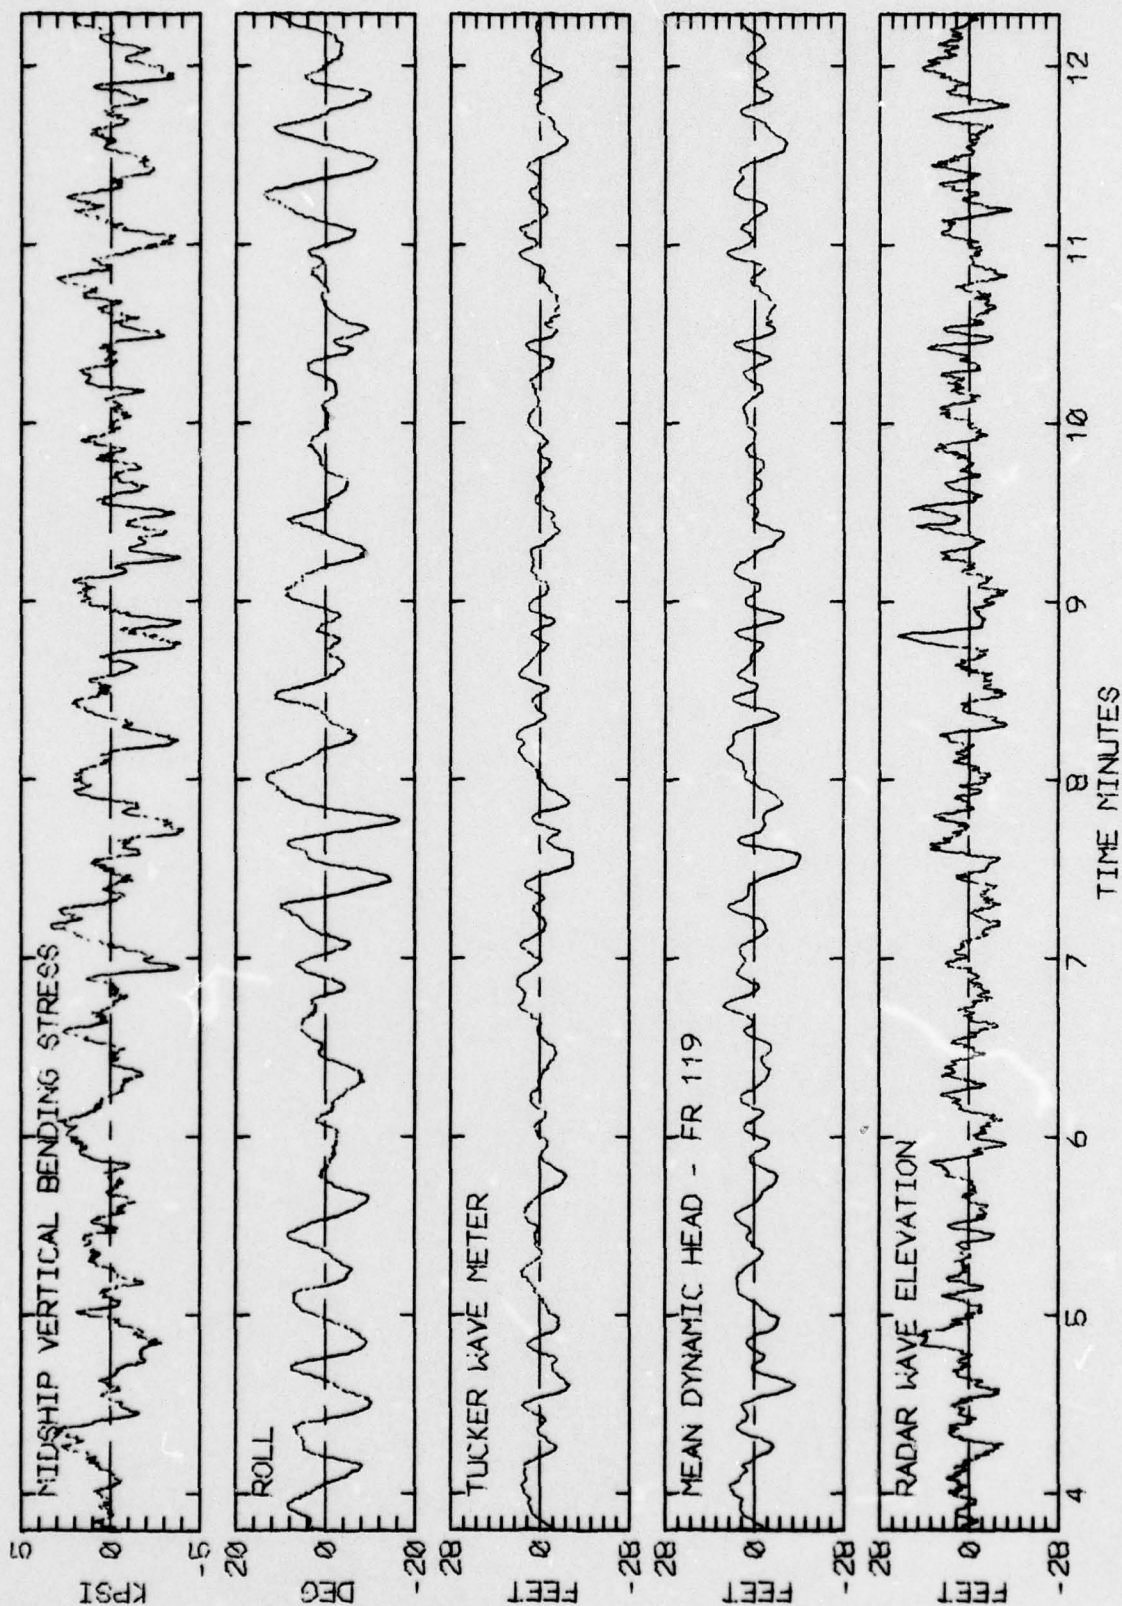 MIDSHIP VERTICAL BENDING STRESS
5
0
-5
KPSI
ROLL
20
0
-20
DEG
TUCKER WAVE METER
28
0
-28
FEET
MEAN DYNAMIC HEAD - FR 119
28
0
-28
FEET
RADAR WAVE ELEVATION
28
0
-28
FEET
4 5 6 7 8 9 10 11 12
TIME MINUTES